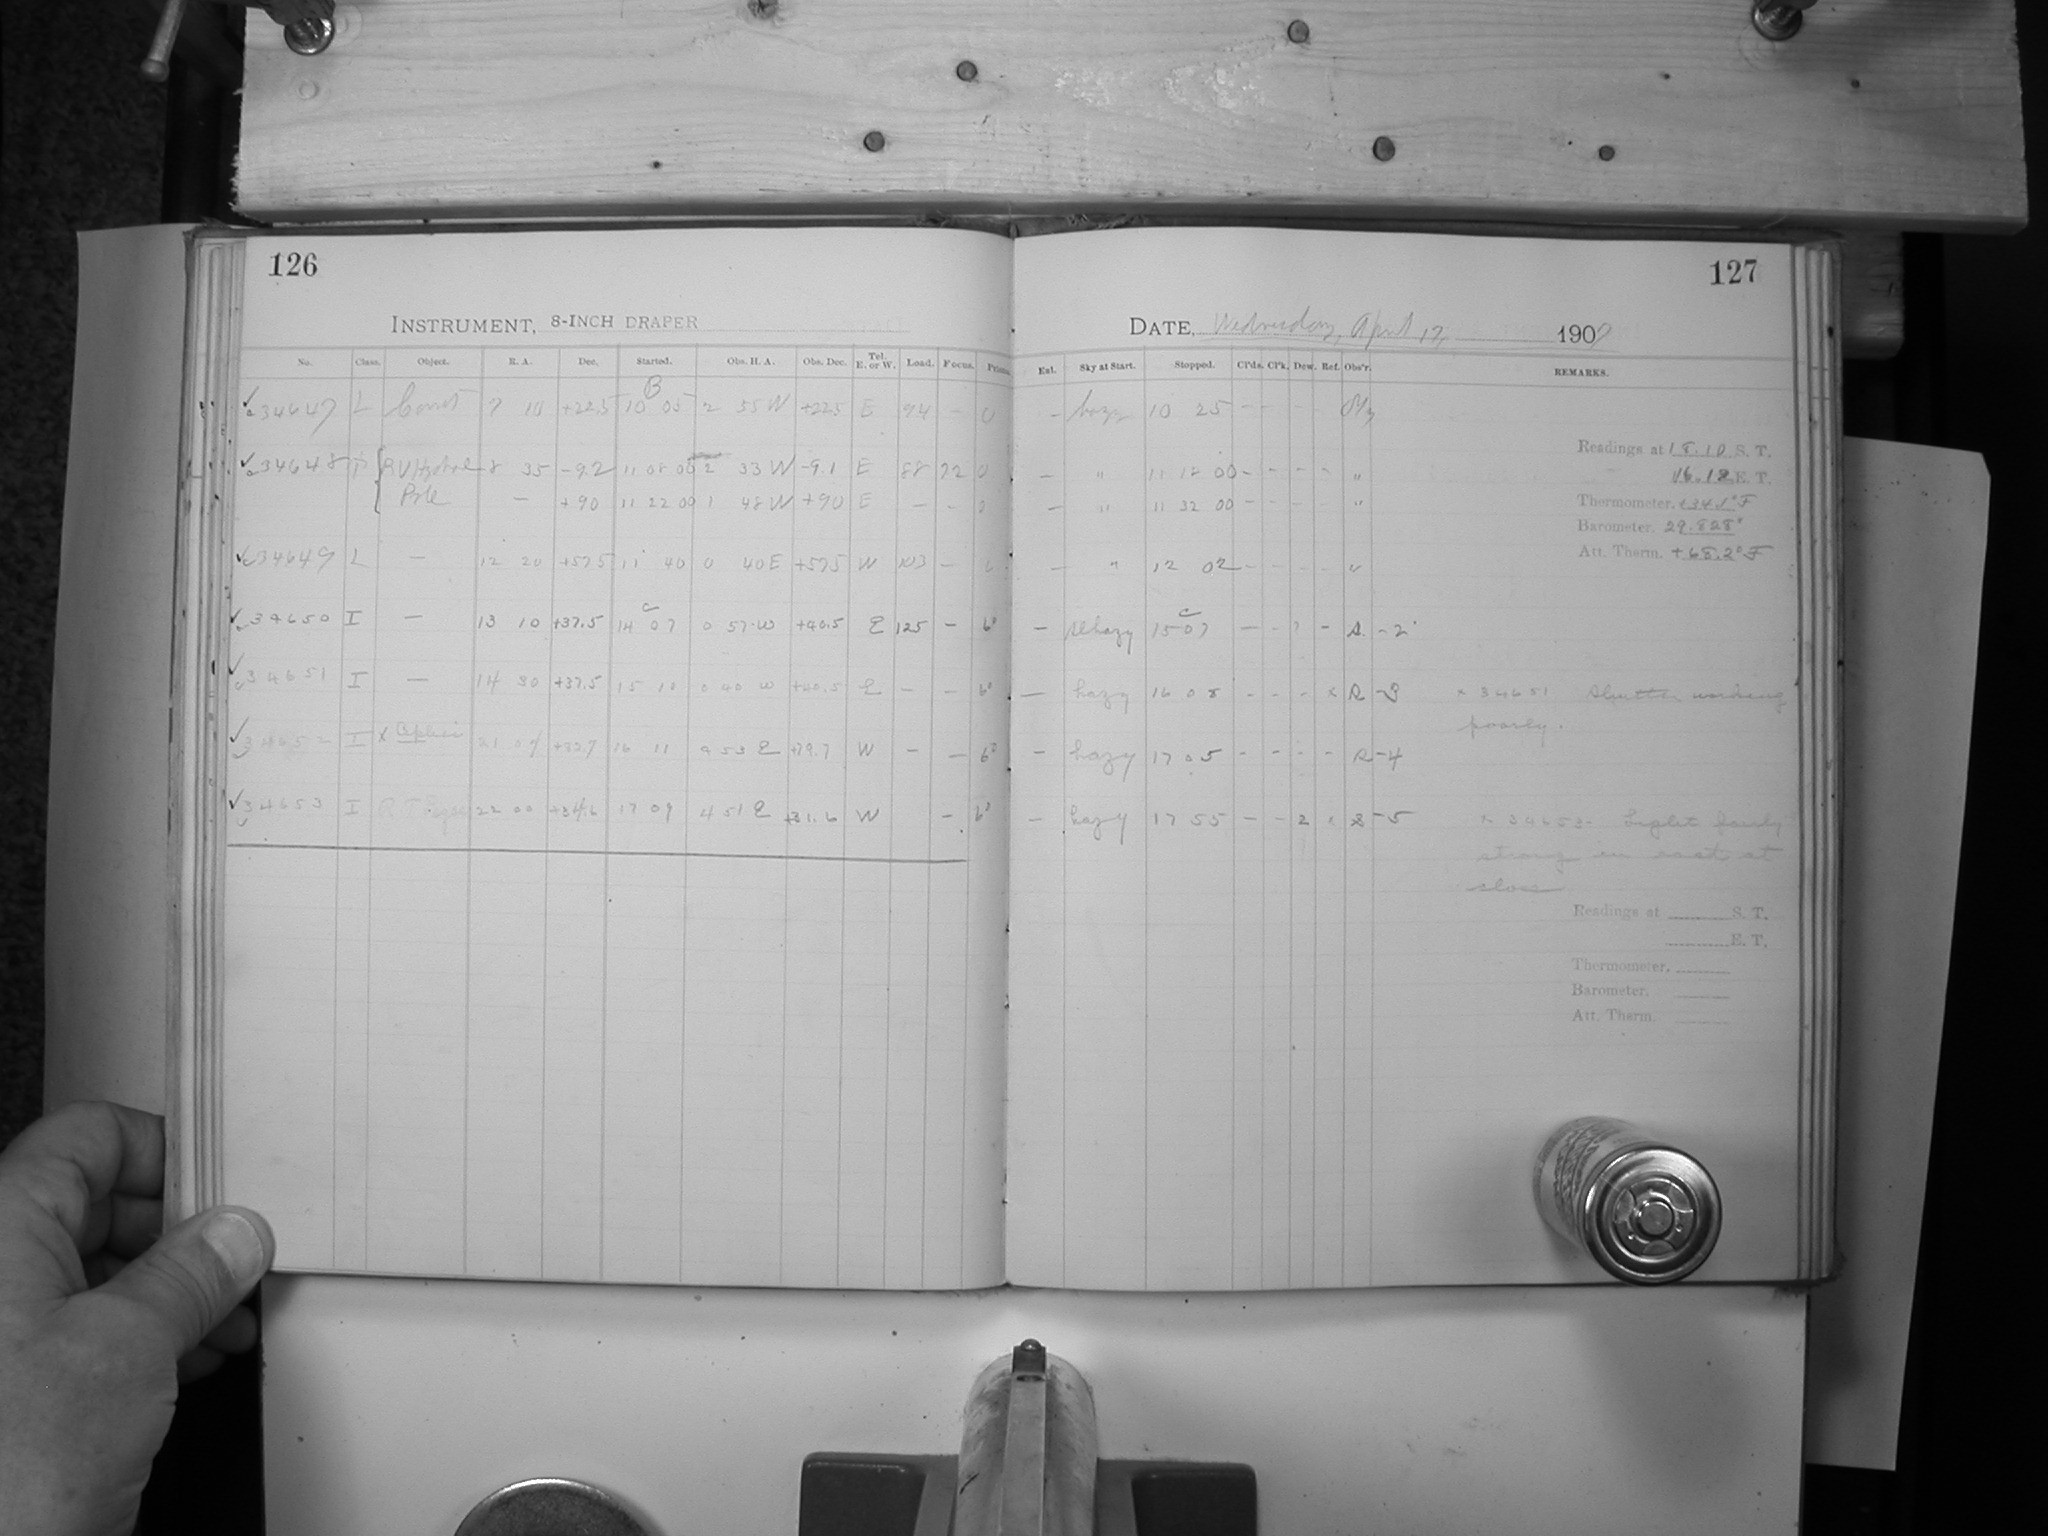 126
INSTRUMENT, 8-INCH DRAPER
No. Class. Object. R. A. Dec. Started. Obs. H. A. Obs. Dec. Tel. E. or W. Load. Focus. Prism.
B
34647 L Comet 7 10 +22.5 10 05 2 55 W +22.5 E 94 - 0
34648 P RV Hydrae 8 35 -9.2 11 08 00 2 33 W -9.1 E 88 72 0
Pole - +90 11 22 00 1 48 W +90 E - - 0
34649 L - 12 20 +57.5 11 40 0 40 E +57.5 W 103 -
c
34650 I - 13 10 +37.5 14 07 0 57 W +40.5 E 125 - 6°
34651 I - 14 30 +37.5 15 10 0 40 W +40.5 E - - 6°
34652 I x 16 11 4 53 E +79.7 W - - 6°
34653 I 22 00 +34.6 17 09 4 51 E +31.6 W - 6°
127
DATE, Wednesday, April 17, 1907
Ext. Sky at Start. Stopped. Cl'ds. Cl'k. Dew. Ref. Obs'r. REMARKS.
- hazy 10 25 - - - -
- " 11 18 00 - - - - "
- " 11 32 00 - - - - "
- " 12 02 - - - - "
c
- 15 07 - - - - 2
- hazy 16 08 - - - x R - 3 x 34651 Shutter working
poorly.
- hazy 17 05 - - - - R - 4
- hazy 17 55 - - 2 x R - 5 x 34653 - Light fairly
strong in east at
close
Readings at 18.10 S. T.
16.18 E. T.
Thermometer. +34.1° F
Barometer. 29.828"
Att. Therm. +68.2° F
Readings at S. T.
E. T.
Thermometer.
Barometer.
Att. Therm.